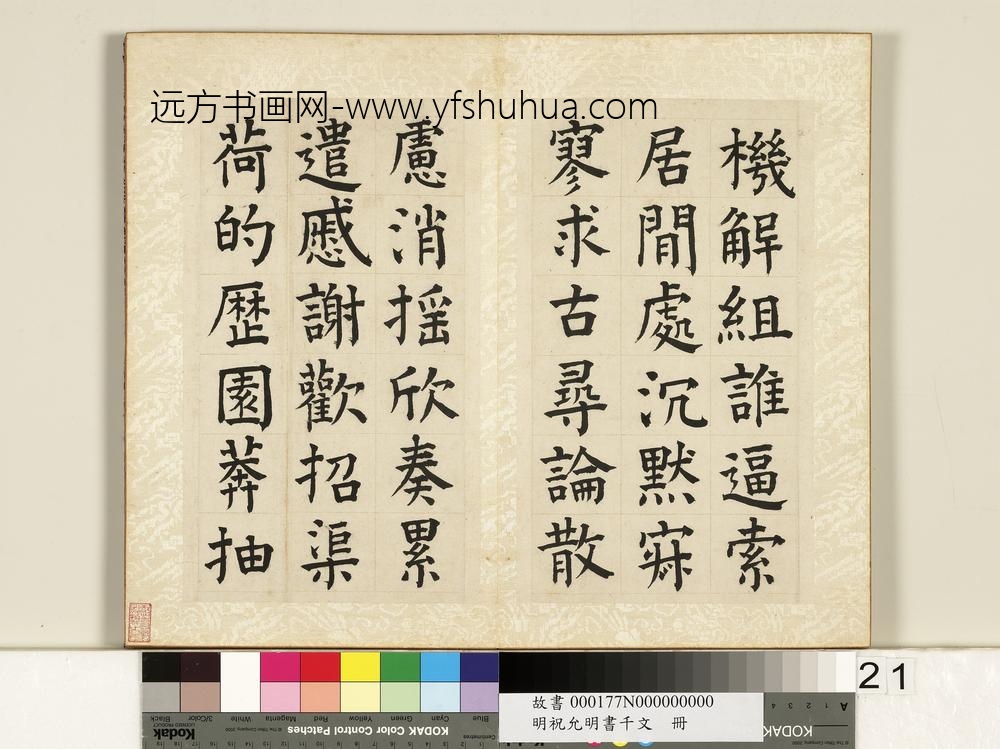 远方书画网-www.yfshuhua.com
機解組誰逼索
居閒處沉默寂
寥求古尋論散
慮消揺欣奏累
遣慼謝歡招渠
荷的歷園莽抽
21
故書 000177N000000000
明祝允明書千文 冊
KODAK
KODAK Color Control Patches
Kodak
Blue Cyan Green Yellow Red Magenta White 3/Color Black